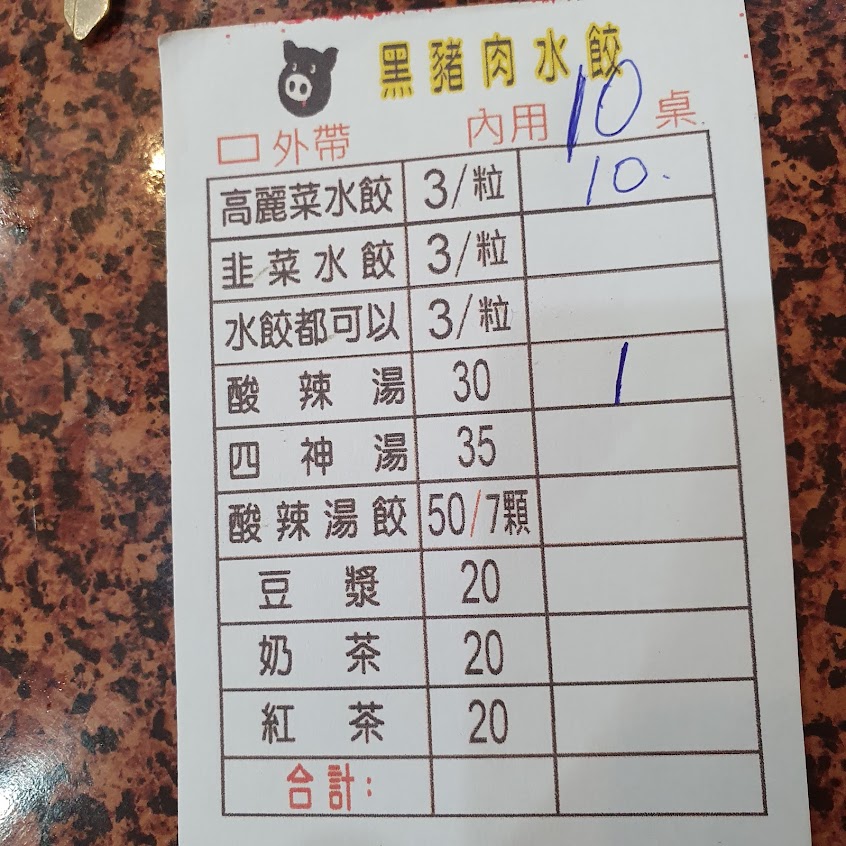 黑豬肉水餃
口外帶 內用 10 桌
高麗菜水餃 3/粒 10.
韭菜水餃 3/粒
水餃都可以 3/粒
酸辣湯 30 1
四神湯 35
酸辣湯餃 50/7顆
豆漿 20
奶茶 20
紅茶 20
合計: